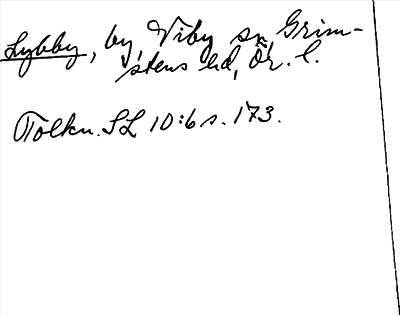 Lybby, by Viby sn Grim-
stens hd, Ör. l.
Tolkn. SL 10:6 s. 173.